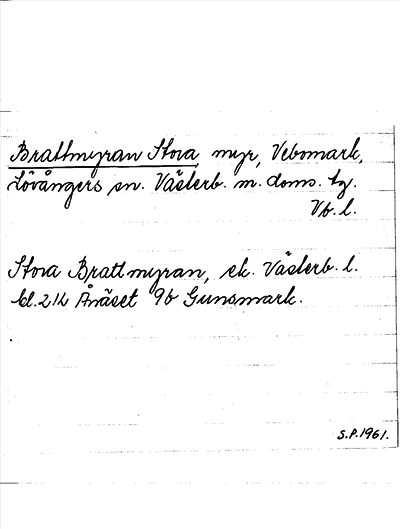 Brattmyran Stora, myr, Vebomark,
Lövångers sn. Västerb. m. doms. tg.
Vb. l.
Stora Brattmyran, ek. Västerb. l.
bl. 21k Ånäset 9b Gunsmark.
S.P. 1961.